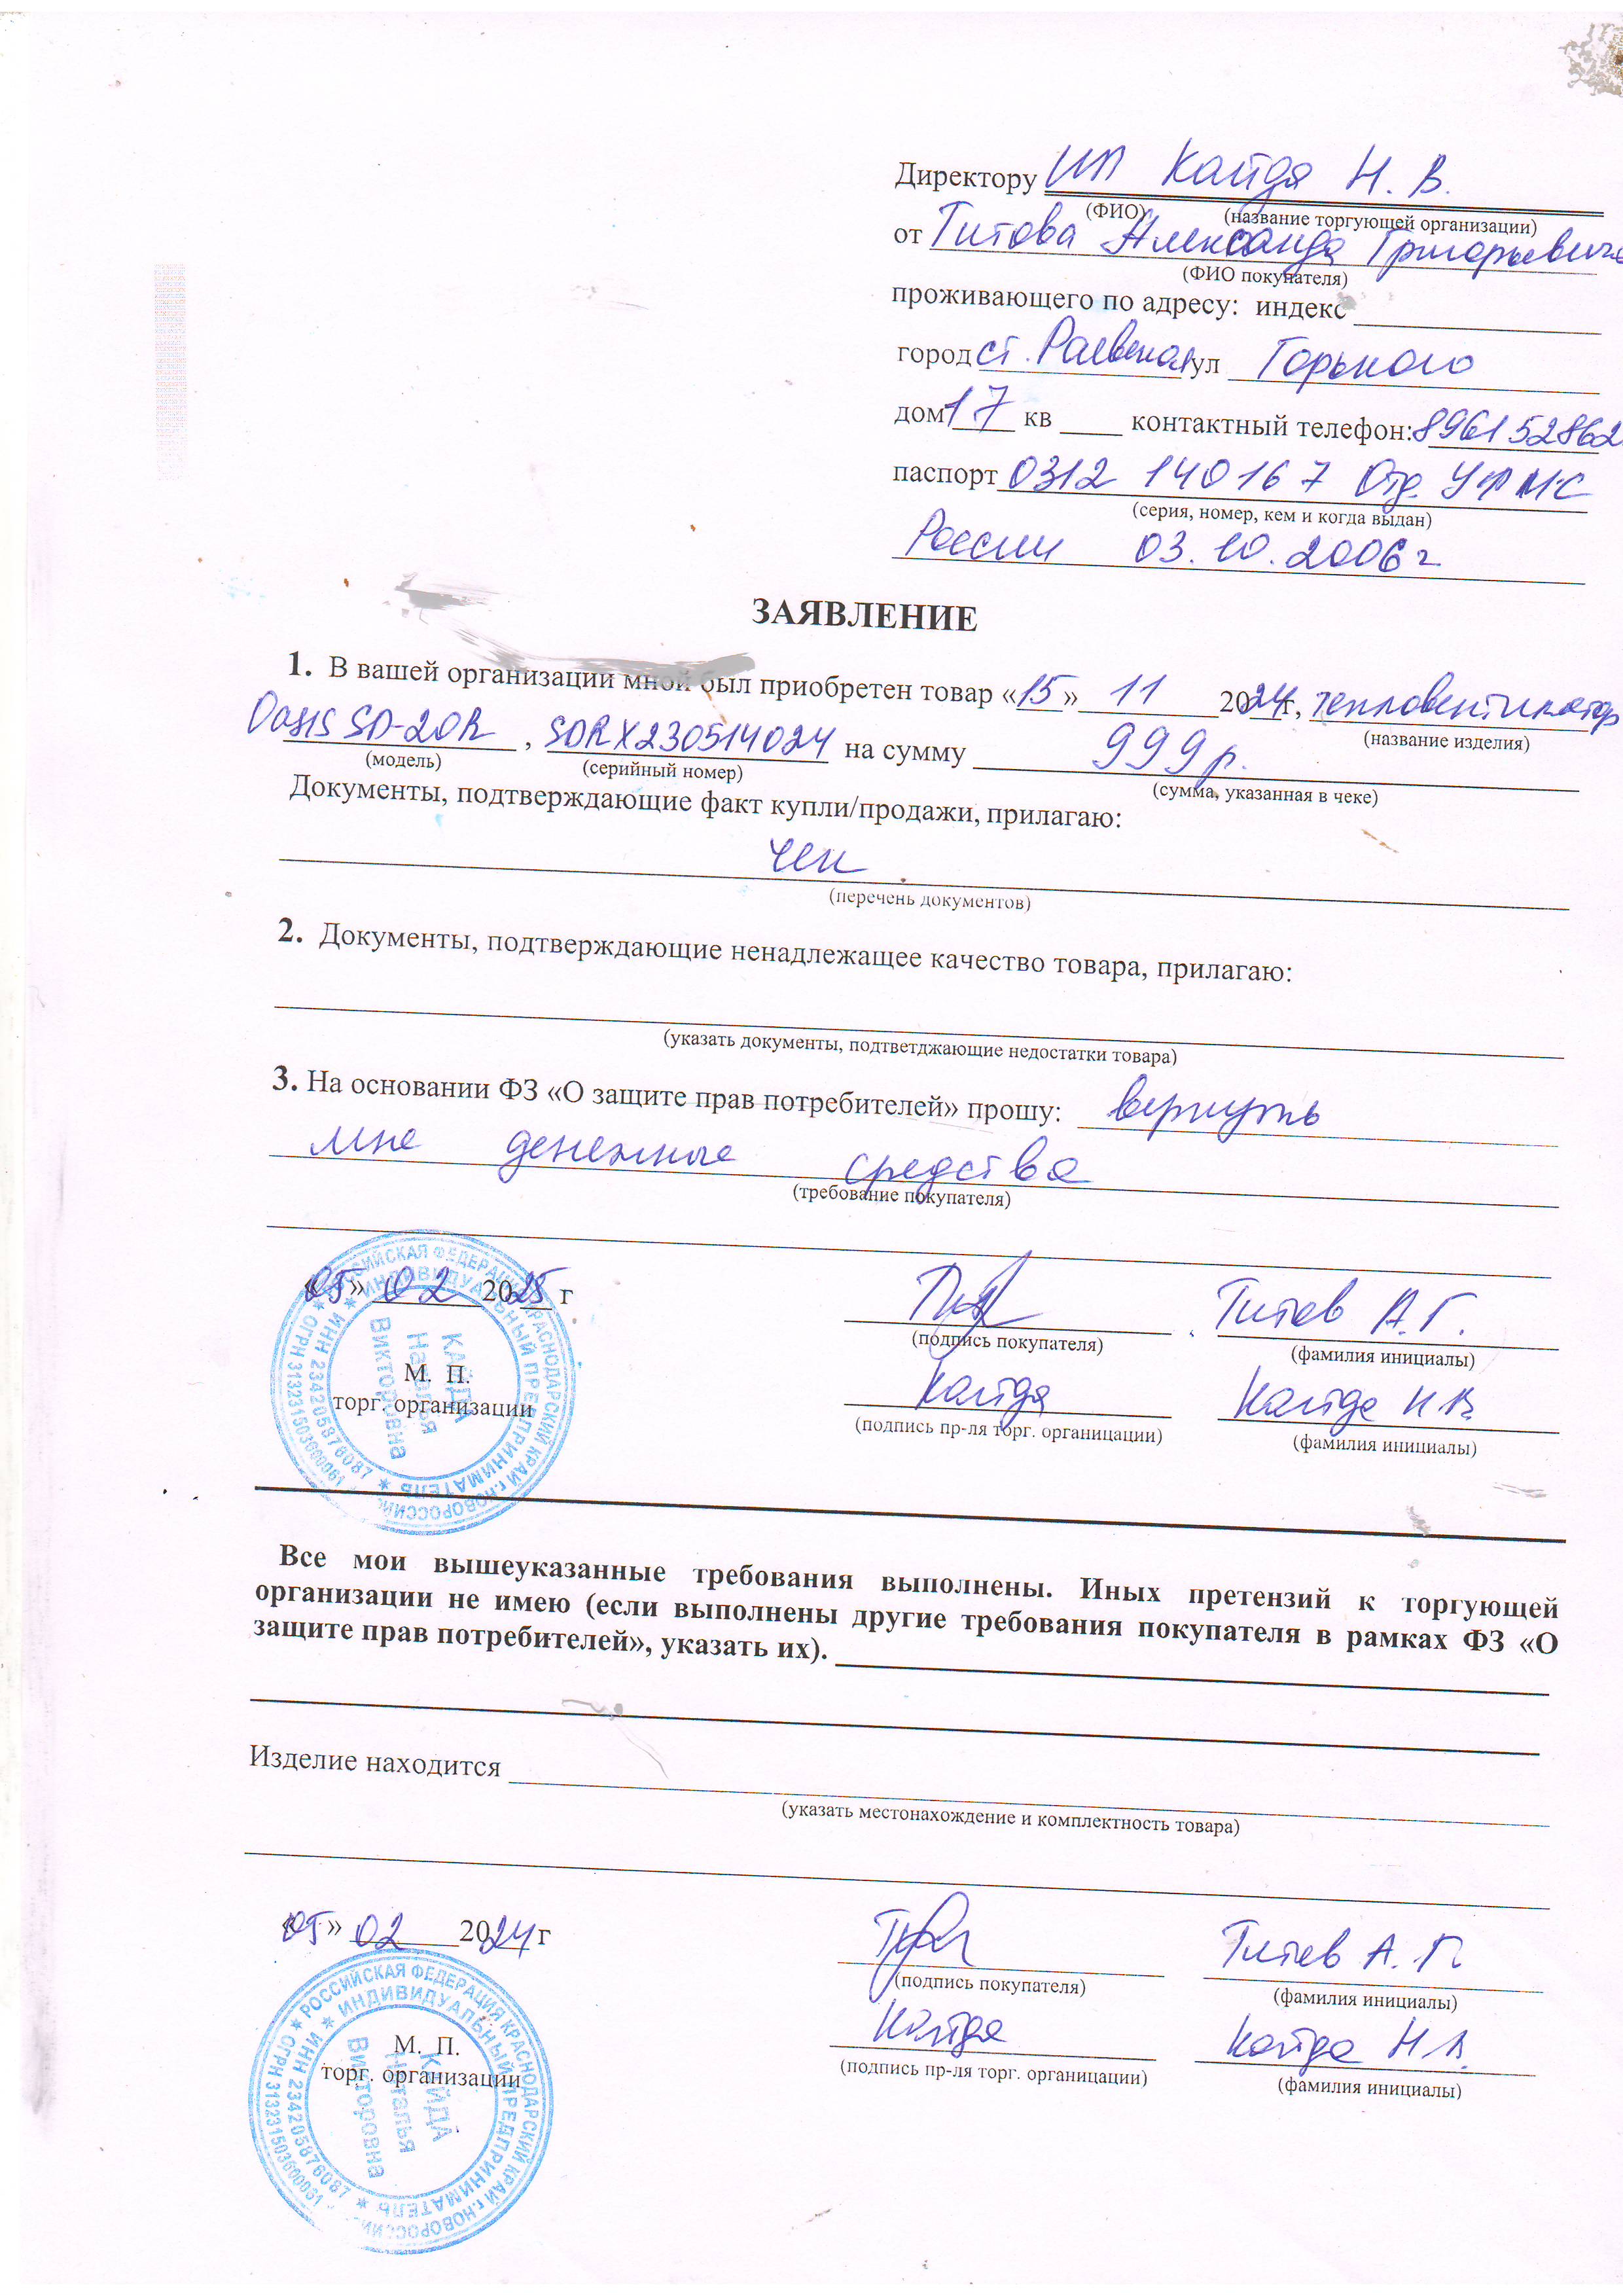 Директору ИП Кайда Н. В.
(ФИО) (название торгующей организации)
от Титова Александра Григорьевича
(ФИО покупателя)
проживающего по адресу: индекс
город ст. Раевская ул Горького
дом 17 кв ____ контактный телефон: 896152862
паспорт 0312 140167 Отд. УФМС
(серия, номер, кем и когда выдан)
России 03.10.2006 г
ЗАЯВЛЕНИЕ
1. В вашей организации мной был приобретен товар «15» 11 2024 г, тепловентилятор
(название изделия)
Oasis SD-20R , SDRX230514024 на сумму 999 р.
(модель) (серийный номер) (сумма, указанная в чеке)
Документы, подтверждающие факт купли/продажи, прилагаю:
чек
(перечень документов)
2. Документы, подтверждающие ненадлежащее качество товара, прилагаю:
(указать документы, подтветджающие недостатки товара)
3. На основании ФЗ «О защите прав потребителей» прошу: вернуть
мне денежные средства
(требование покупателя)
«05» 02 2025 г Титов А.Г.
(подпись покупателя) (фамилия инициалы)
М. П. Кайда Кайда Н.В.
торг. организации
(подпись пр-ля торг. органицации) (фамилия инициалы)
РОССИЙСКАЯ ФЕДЕРАЦИЯ КРАСНОДАРСКИЙ КРАЙ г.НОВОРОССИЙ
ОГРН 313231503600061
ИНДИВИДУАЛЬНЫЙ ПРЕДПРИНИМАТЕЛЬ
ИНН 234205876087
КАЙДА
Наталья
Викторовна
Все мои вышеуказанные требования выполнены. Иных претензий к торгующей
организации не имею (если выполнены другие требования покупателя в рамках ФЗ «О
защите прав потребителей», указать их).
Изделие находится
(указать местонахождение и комплектность товара)
«05» 02 2024 г Титов А. Г.
(подпись покупателя) (фамилия инициалы)
М. П. Кайда Кайда Н.В.
торг. организации
(подпись пр-ля торг. органицации) (фамилия инициалы)
РОССИЙСКАЯ ФЕДЕРАЦИЯ КРАСНОДАРСКИЙ КРАЙ г.НОВОРОССИЙ
ОГРН 313231503600061
ИНДИВИДУАЛЬНЫЙ ПРЕДПРИНИМАТЕЛЬ
ИНН 234205876087
КАЙДА
Наталья
Викторовна